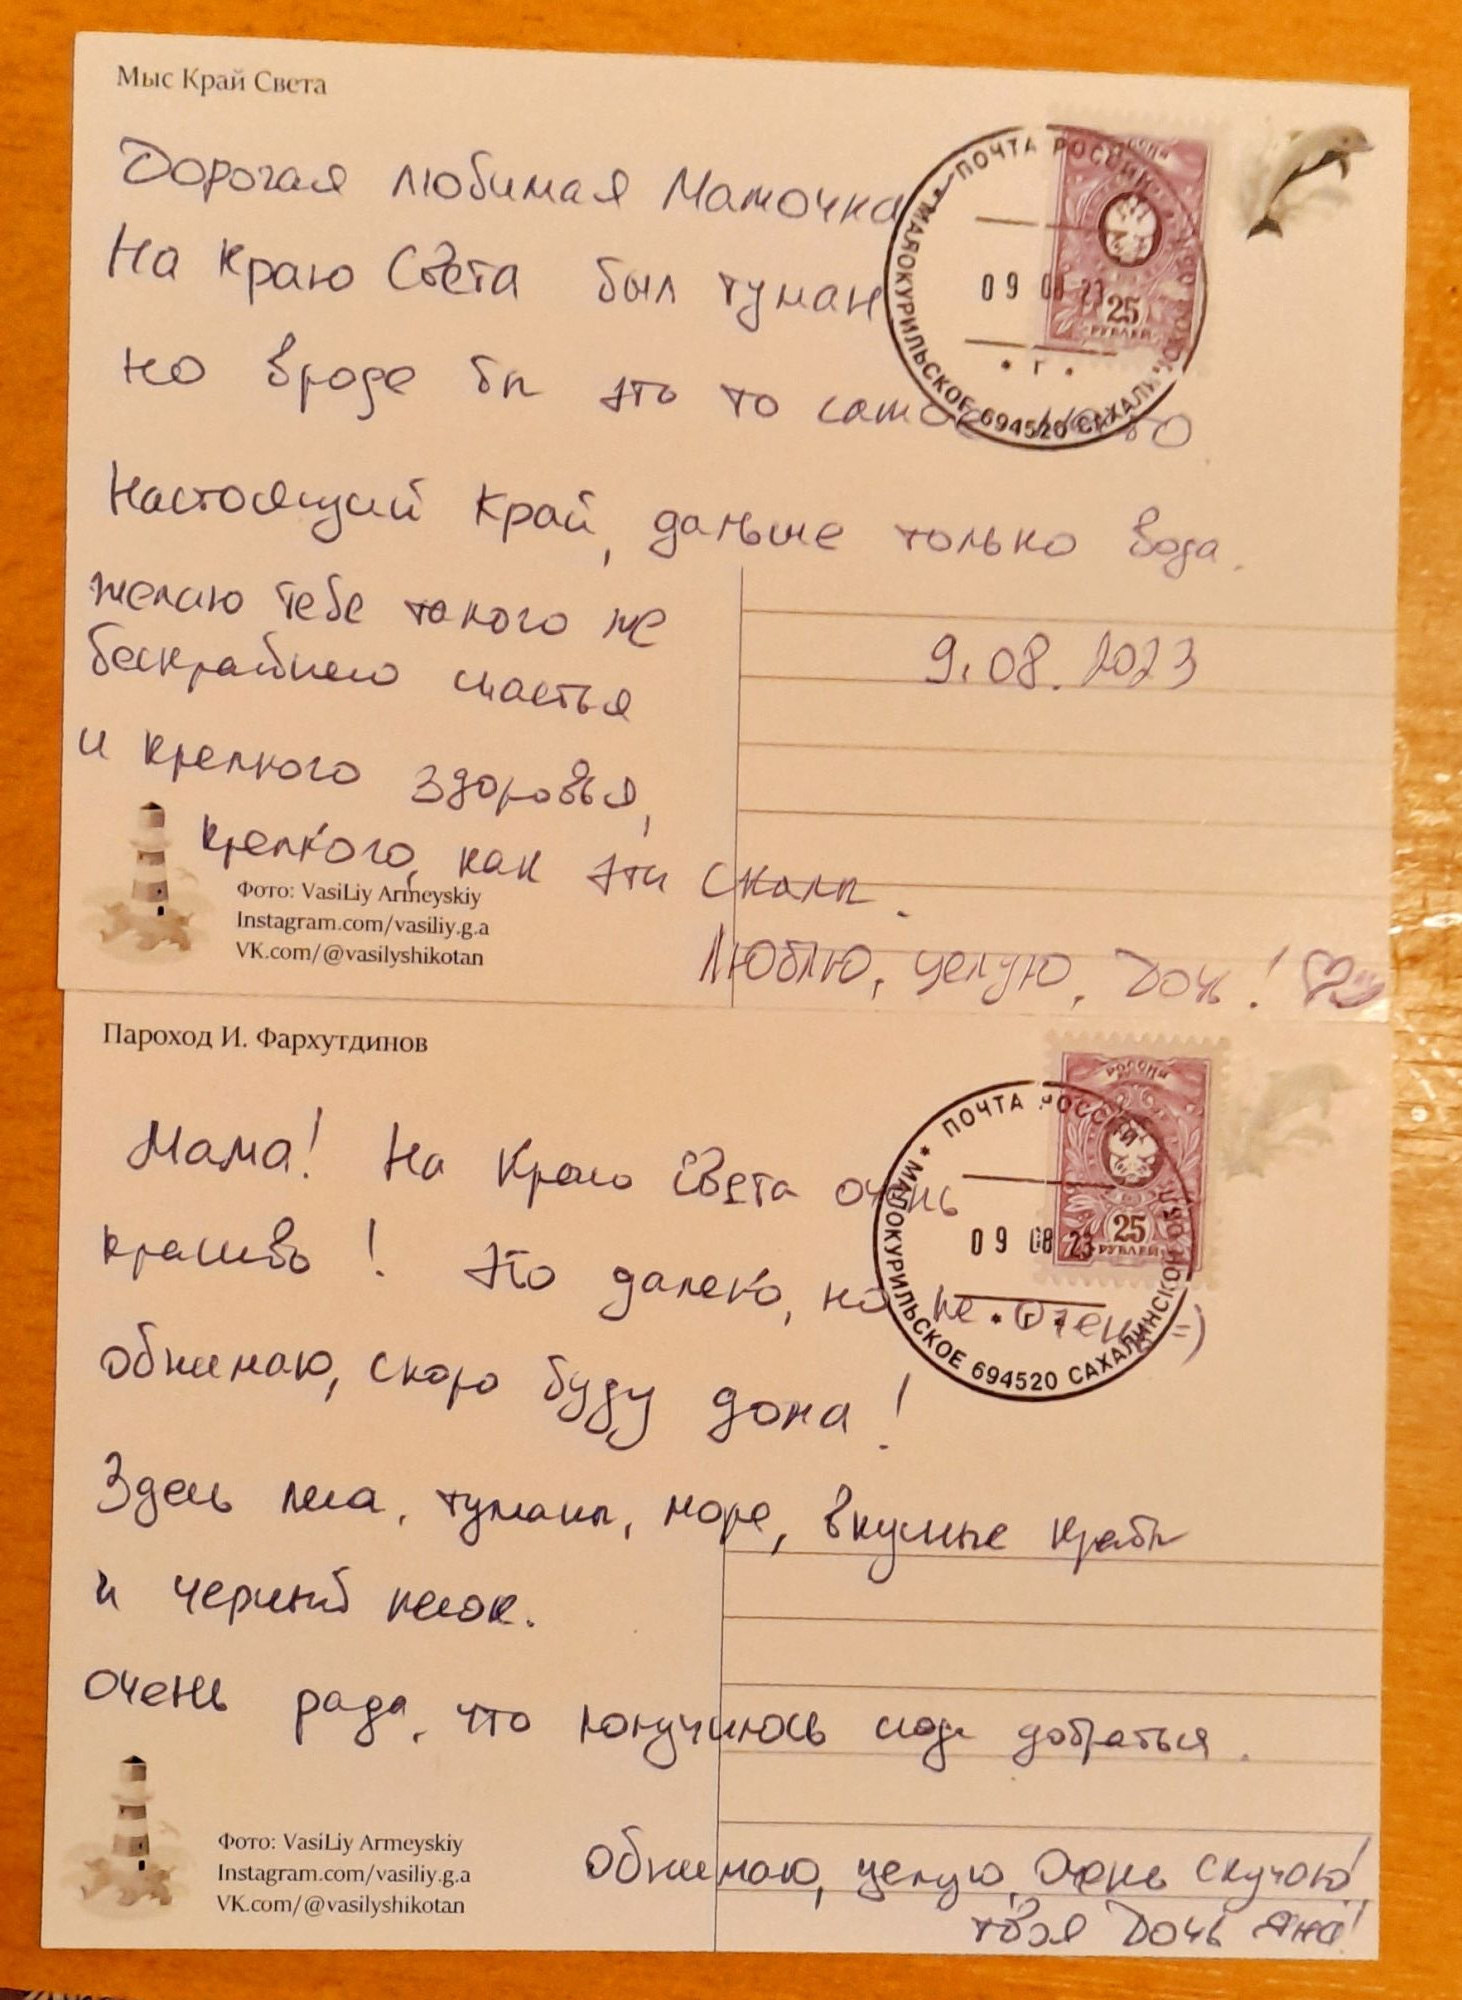 Мыс Край Света
ПОЧТА РОССИИ
МАЛОКУРИЛЬСКОЕ 694520 САХАЛИНСКОЙ
09 08 23
г
25
РУБЛЕЙ
Дорогая любимая Мамочка
На Краю Света был туман
но вроде бы это то самое
Настоящий Край, дальше только вода.
желаю тебе такого же
бескрайнего счастья
и крепкого здоровья,
крепкого, как эти скалы.
9.08.2023
Люблю, целую, Дочь!
Фото: VasiLiy Armeyskiy
Instagram.com/vasiliy.g.a
VK.com/@vasilyshikotan
Пароход И. Фархутдинов
РОССИЯ
ПОЧТА РОССИИ
МАЛОКУРИЛЬСКОЕ 694520 САХАЛИНСКОЙ
09 08 23
г
25
РУБЛЕЙ
Мама! На Краю Света очень
красиво! Это далеко, но не очень =)
обнимаю, скоро буду дома!
Здесь леса, туманы, море, вкусные крабы
и черный песок.
очень рада, что получилось сюда добраться.
обнимаю, целую, Очень скучаю!
твоя Дочь Яна!
Фото: VasiLiy Armeyskiy
Instagram.com/vasiliy.g.a
VK.com/@vasilyshikotan